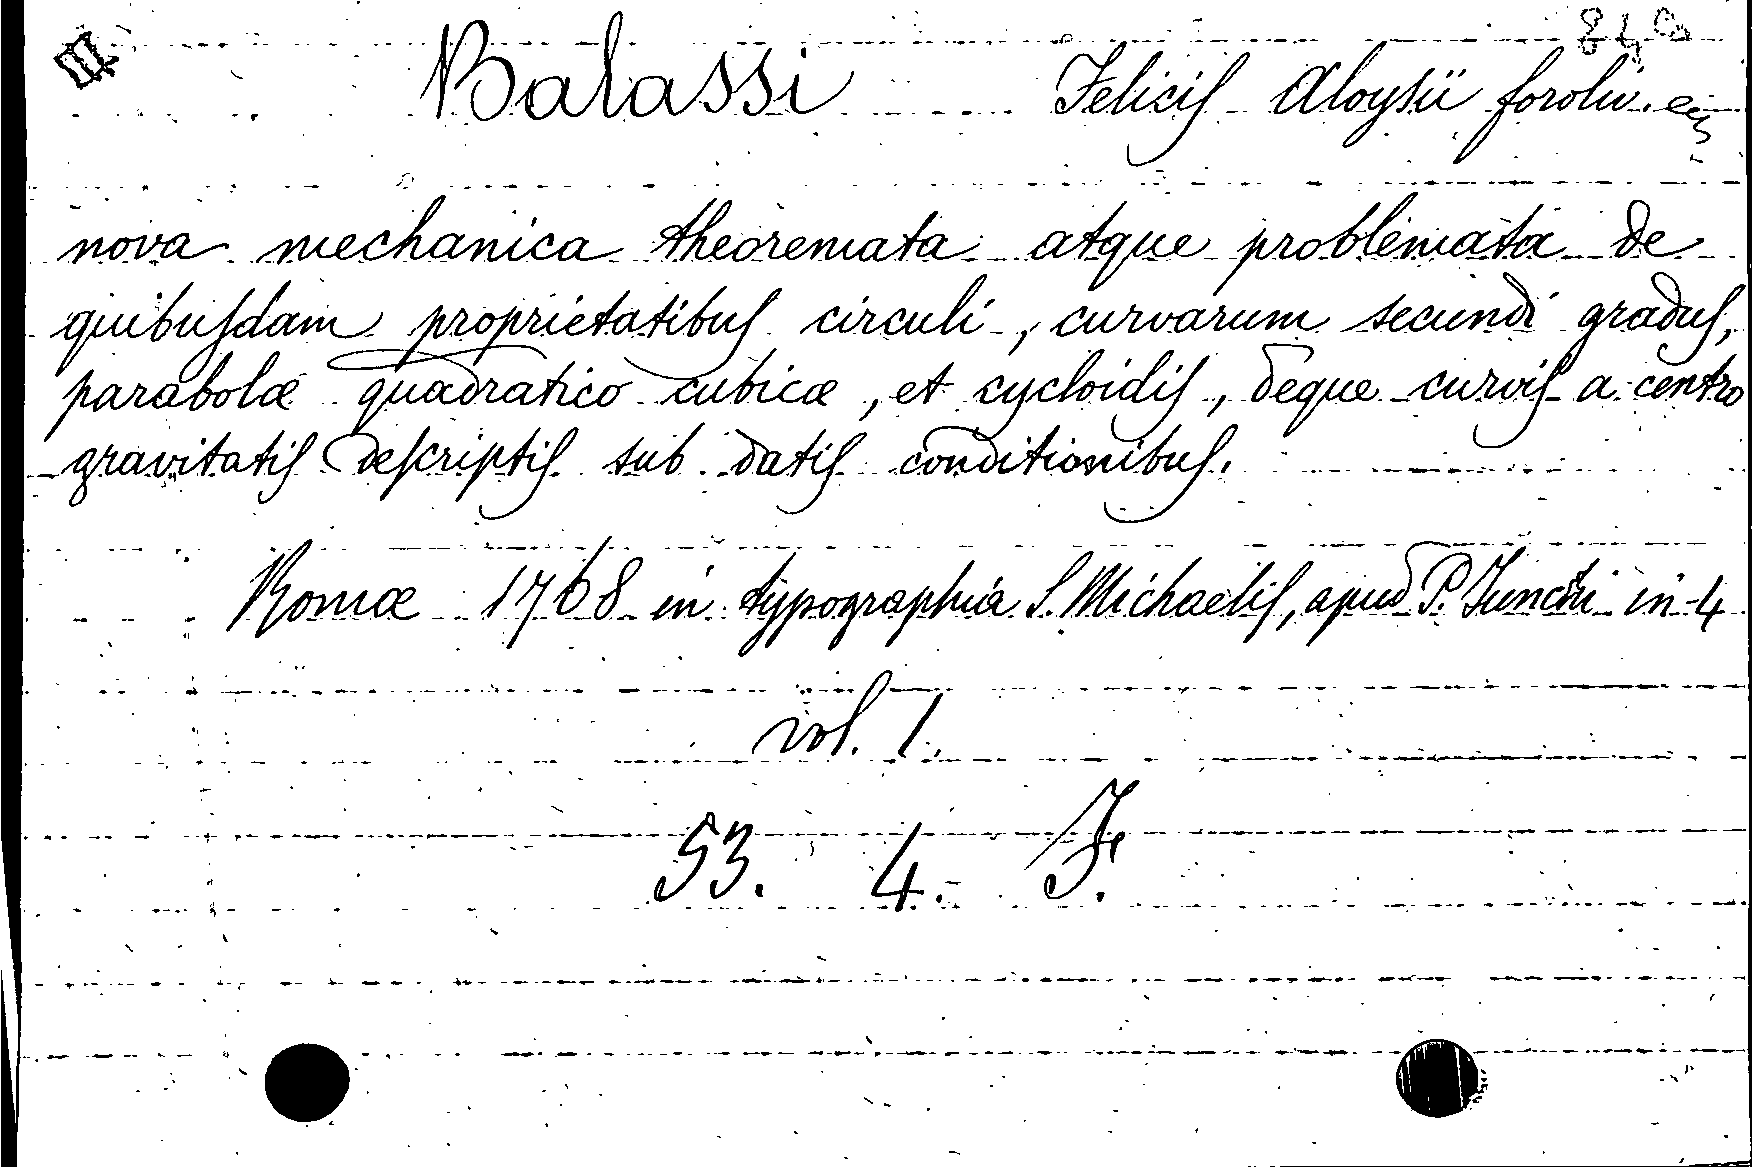 Balassi Felicis Aloysii foroliv.
nova mechanica theoremata atque problemata de
quibusdam proprietatibus circuli, curvarum secundi gradus,
parabolæ quadratico cubicæ, et cycloidis, deque curvis a centro
gravitatis descriptis sub datis conditionibus.
Romæ 1768 in typographia S. Michaelis, apud P. Junchi in-4
vol. 1.
53. 4. F.